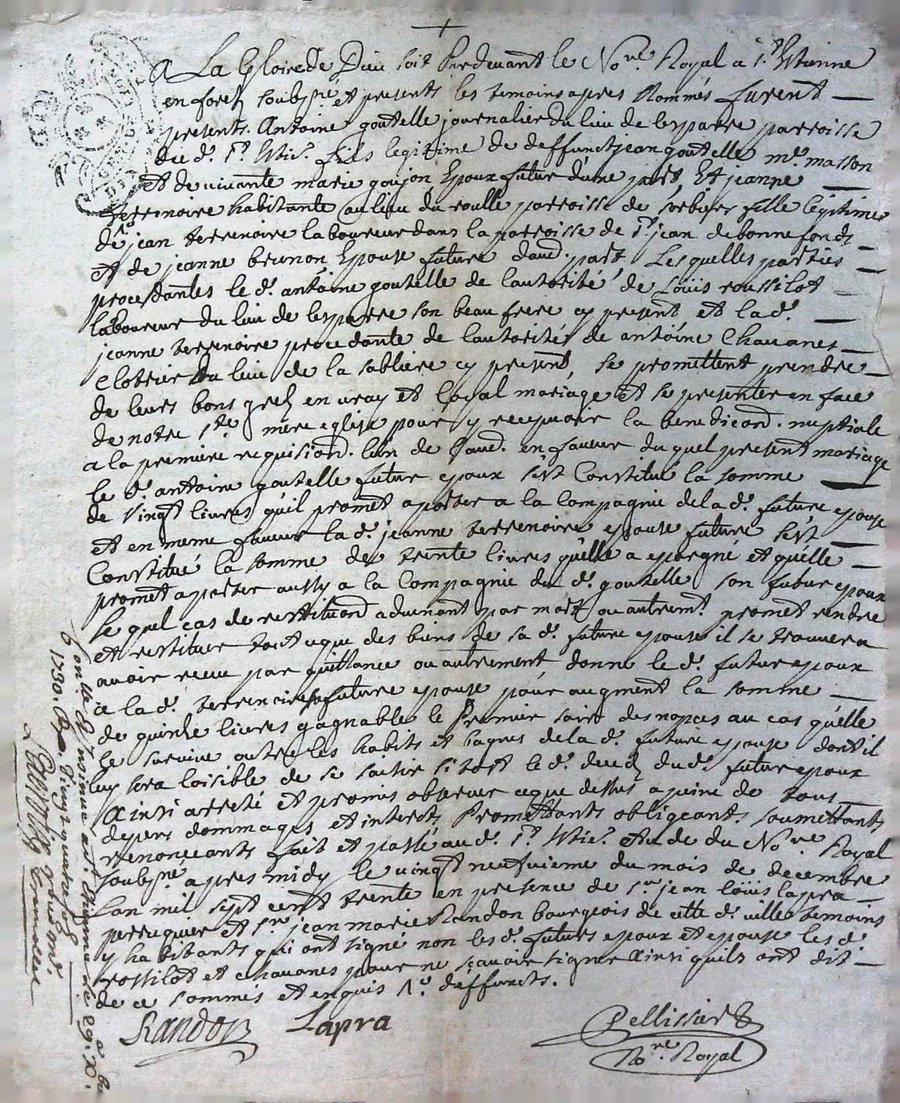 A La Gloire de Dieu soit Pardevant le No.re Royal a S.t Etienne
en forest soubsne. et presents les temoins apres Nommés furent
presents. Antoine goutelle journalier du lieu de lesparre parroisse
du d. S.t Etie. fils legitime de deffunct jean goutelle m.e masson
et de vivante marie goujon Epoux futur d'une part, Et jeanne
terrenoire habitante au lieu du roulle parroisse de sorbiers fille legitime
de jean terrenoire laboureur dans la parroisse de S.t jean de bonnefonds
et de jeanne brunon Epouse future daud. part. Lesquelles parties
procedantes le d. antoine goutelle de lautorité de Louis roussilot
laboureur du lieu de lesparre son beau frere cy present et la d.
jeanne terrenoire procedante de lautorité de antoine Chavanes
Clotrier du lieu de la sabliere cy present, se promettent prendre
de leurs bons grez en vray et loyal mariage et se presenter en face
de notre S.te mere eglise pour y recepvoir la benediond. nuptiale
a la premiere requisiond. lun de laud. en faveur du quel present mariage
le d. antoine goutelle futur epoux s'est Constitué la somme
de vingt livres quil promet aporter a la Compagnie de la d. future epouse
et en meme faveur la d. jeanne terrenoire epouse future s'est
Constitué la somme de trente livres quelle a epargné et quelle
promet aporter aussy a la Compagnie du d. goutelle son futur epoux
le quel cas de restituond advenant par mort ou autremt. promet rendre
et restituer tout ce que des biens de sa d. future epouse il se trouvera
avoir receu par quittance ou autrement donne le d. futur epoux
a la d. terrenoire sa future epouse pour augment la somme
de quinze livres gagnable le Premier soir des nopces au cas quelle
le survive outre les habits et bagues de la d. future epouse dont il
luy sera loisible de se saisir sitost le d. decez du d. futur epoux
Ainsi arreté et promis observer ce que dessus a peine de tous
depens dommages et interets Promettants obligeants soumettants
renonceants fait et passé au d. S.t Etie. Etude du No.re Royal
soubsne. apres midy le vingt neufvieme du mois de decembre
lan mil sept cent trente en presence de S.r jean Loüis lapra
perruquier et S.r jean marie Randon bourgeois de cette d. ville temoins
y habitants qui ont signé non les d. futurs epoux et epouse les d.
rossilot et chavanes pour ne sçavoir signer ainsi quils ont dit
de ce sommés et enquis deffuncts.
Randon Lapra
Pellissier
No.re Royal
1730